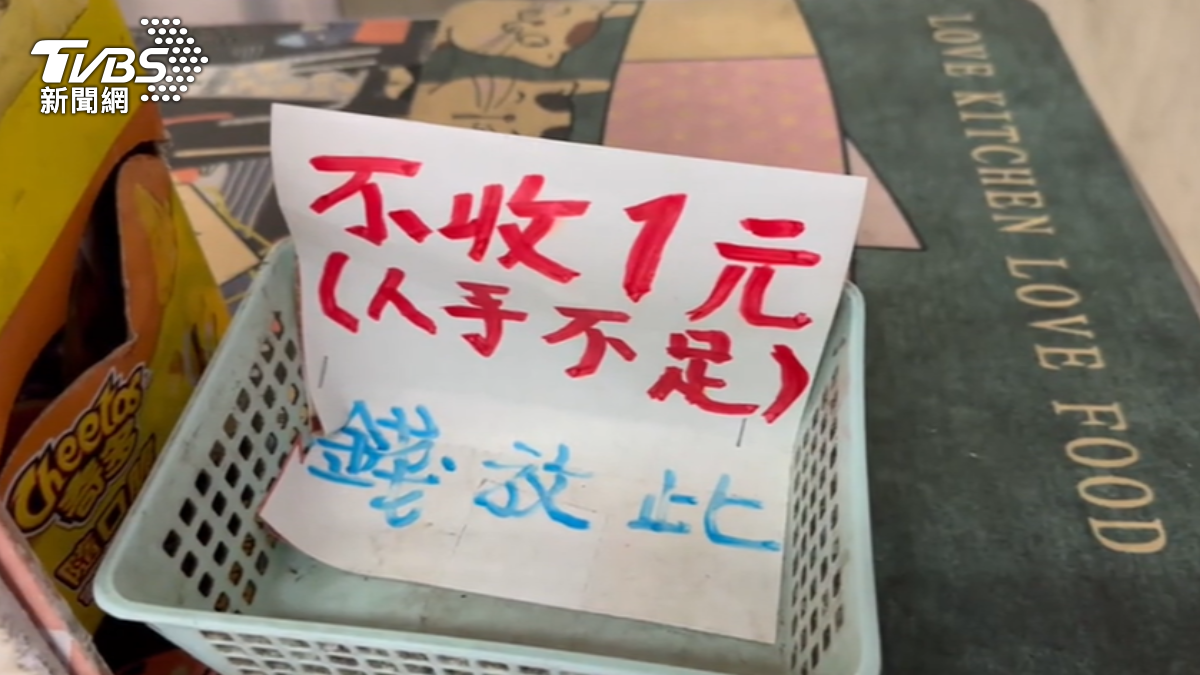 TVBS
新聞網
不收1元
(人手不足)
錢放此
LOVE KITCHEN LOVE FOOD
Cheetos
奇多
隨口脆